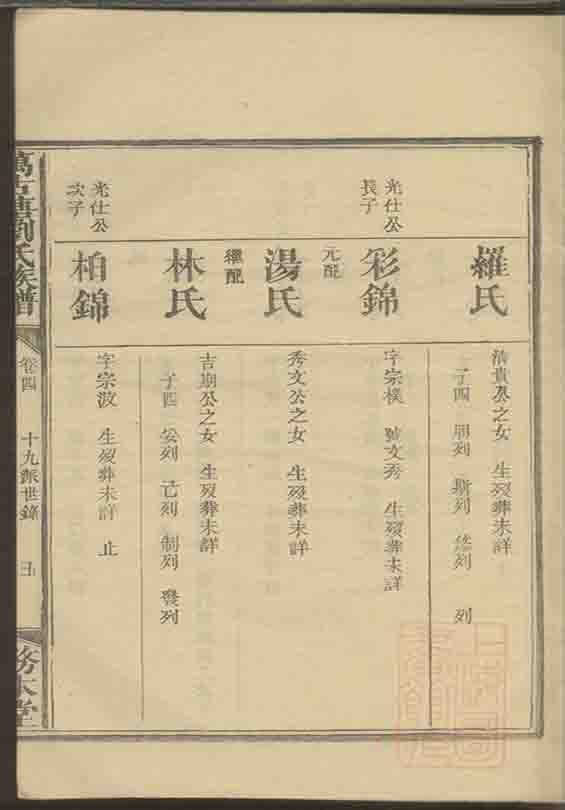 羅氏
清貴公之女 生歿葬未詳
子四 列 斯列 列 列
光仕公
長子
彩錦
字宗樸 號文秀 生歿葬未詳
元配
湯氏
秀文公之女 生歿葬未詳
繼配
林氏
吉期公之女 生歿葬未詳
子四 妥列 己列 制列 發列
光仕公
次子
柏錦
字宗波 生歿葬未詳 止
萬古塘劉氏族譜
卷四 十九派世錄
務本堂
上海圖
書館藏